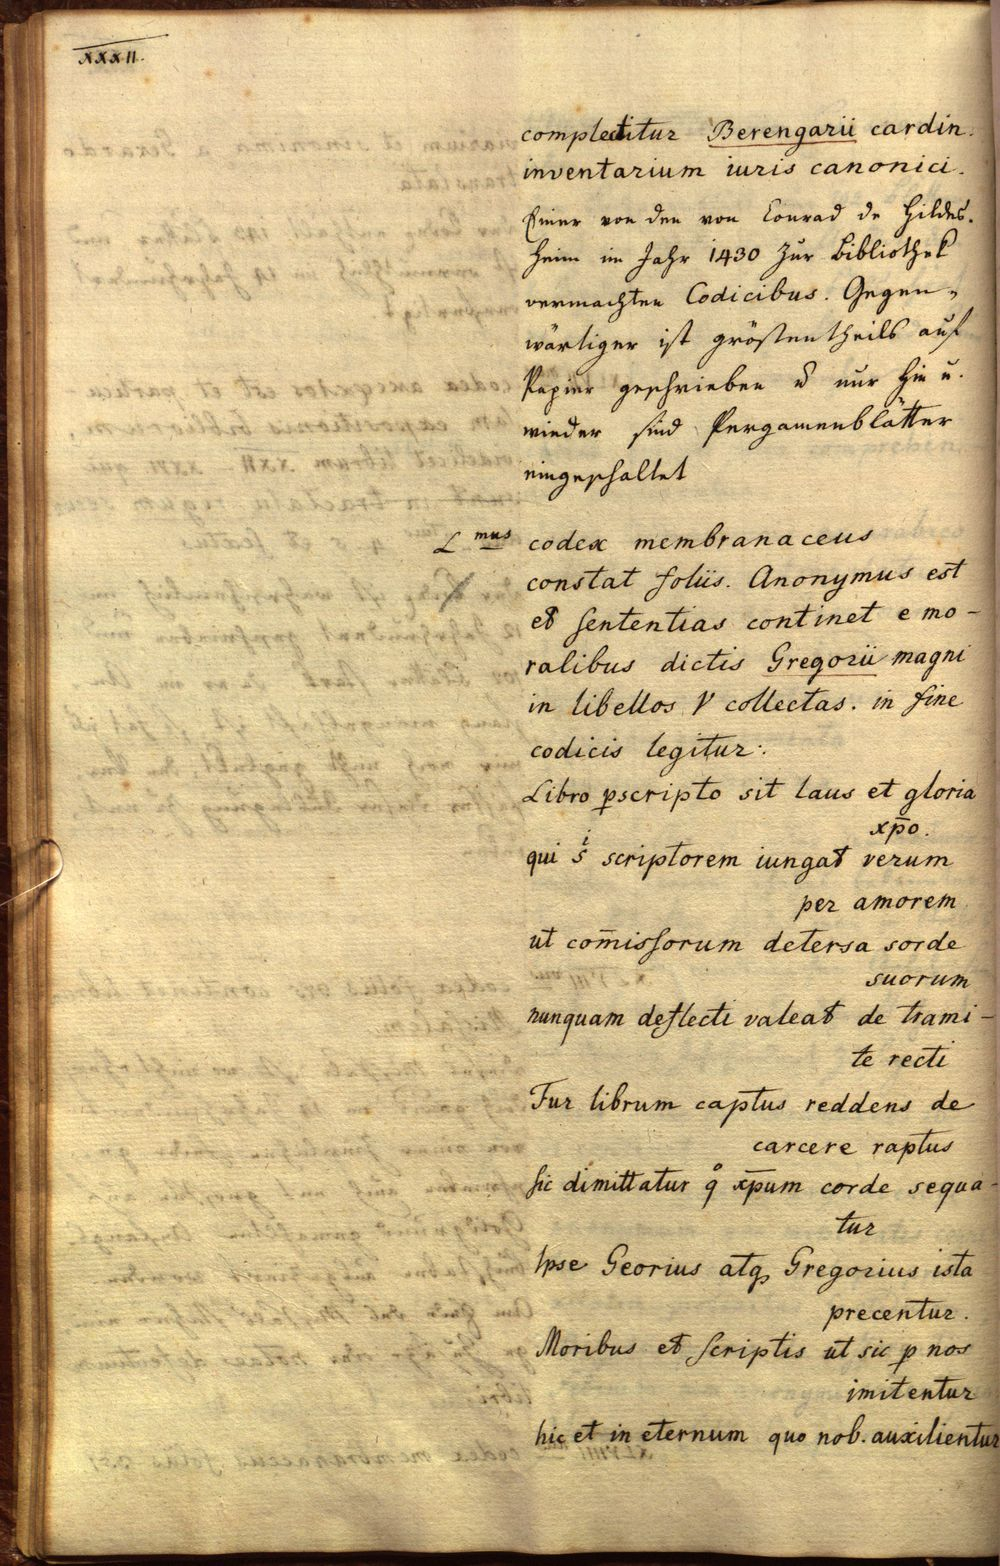 XXXII.
complectitur Berengarii cardin.
inventarium iuris canonici.
Einer von den von Conrad de Hildes-
heim im Jahr 1430 zur Bibliothek
vermachten Codicibus. Gegen-
wärtiger ist gröstentheils auf
Papier geschrieben u nur hin u.
wieder sind Pergamenblätter
eingeschaltet
L mus codex membranaceus
constat foliis. Anonymus est
et sententias continet e mo-
ralibus dictis Gregorii magni
in libellos V collectas. in fine
codicis legitur:
Libro pscripto sit laus et gloria
xp̄o.
qui s scriptorem iungat verum
per amorem
ut com̄issorum detersa sorde
suorum
nunquam deflecti valeat de trami-
te recti
Fur librum captus reddens de
carcere raptus
sic dimittatur qͦ xp̄um corde sequa-
tur
Ipse Georius atq Gregorius ista
precentur.
Moribus et scriptis ut sic p nos
imitentur
hic et in eternum quo nob. auxilientur